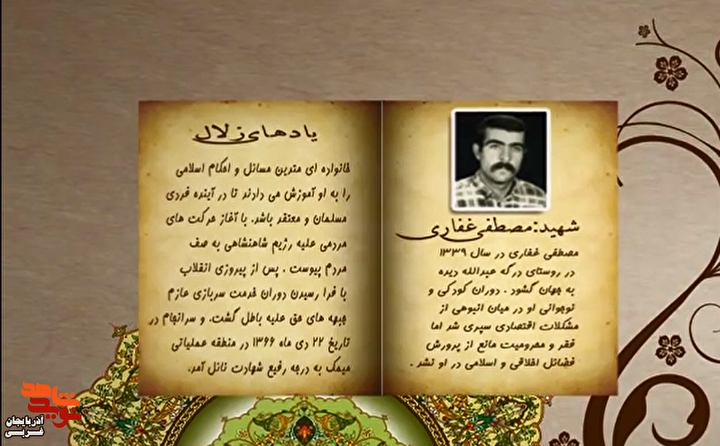 شهید:مصطفی غفاری
مصطفی غفاری در سال ۱۳۳۹
در روستای درگه عبدالله دیده
به جهان گشود . دوران کودکی و
نوجوانی او در میان انبوهی از
مشکلات اقتصادی سپری شد اما
فقر و محرومیت مانع از پرورش
فضائل اخلاقی و اسلامی در او نشد .
یادهای زلال
خانواده ای متدین مسائل و احکام اسلامی
را به او آموزش می دادند تا در آینده فردی
مسلمان و معتقد باشد. با آغاز حرکت های
مردمی علیه رژیم شاهنشاهی به صف
مردم پیوست . پس از پیروزی انقلاب
با فرا رسیدن دوران خدمت سربازی عازم
جبهه های حق علیه باطل گشت. و سرانجام در
تاریخ ۲۲ دی ماه ۱۳۶۶ در منطقه عملیاتی
میمک به درجه رفیع شهادت نائل آمد.
نوید شاهد
آذربایجان
غربی